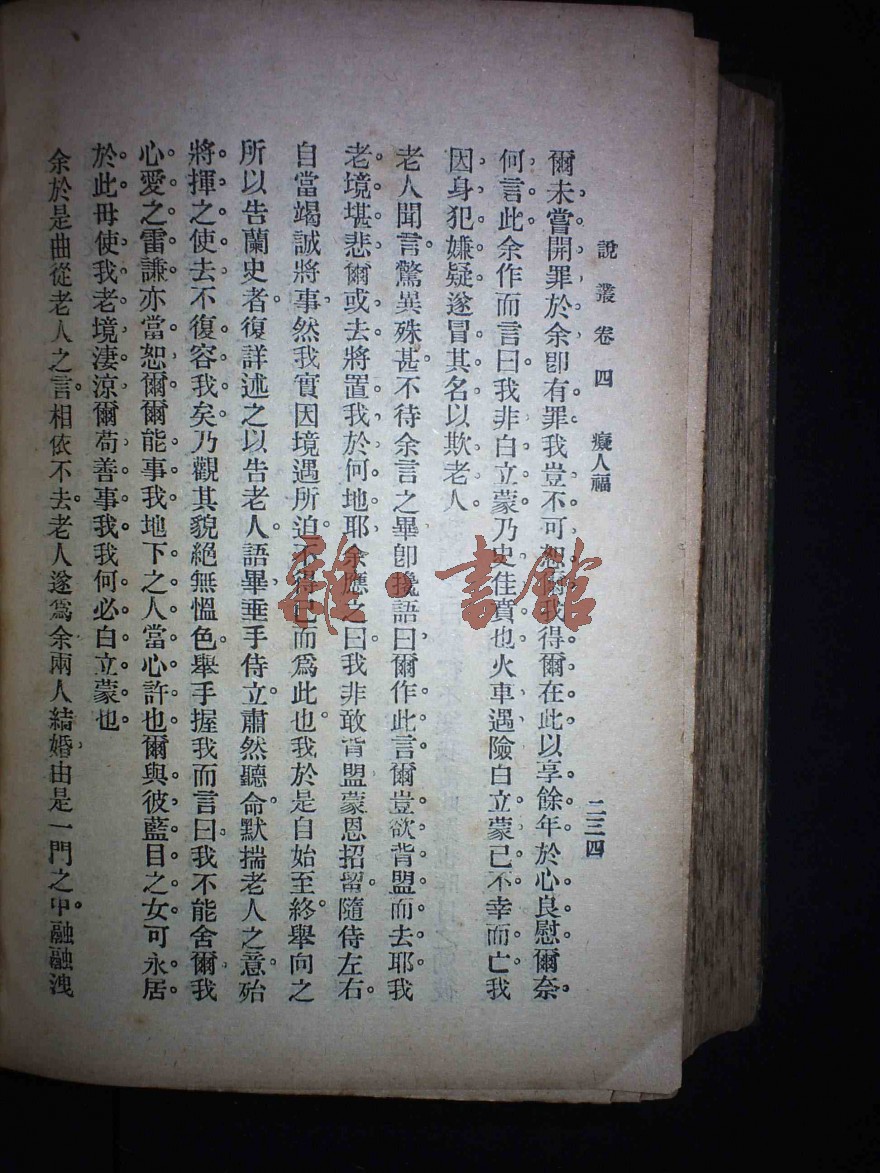 說叢卷四 癡人福 二三四
爾未嘗開罪於余卽有罪我豈不可恕爾我得爾在此以享餘年於心良慰爾奈
何言此余作而言曰我非白立蒙乃史佳賁也火車遇險白立蒙已不幸而亡我
因身犯嫌疑遂冒其名以欺老人
老人聞言驚異殊甚不待余言之畢卽攙語曰爾作此言爾豈欲背盟而去耶我
老境堪悲爾或去將置我於何地耶余應之曰我非敢背盟蒙恩招留隨侍左右
自當竭誠將事然我實因境遇所迫不得已而爲此也我於是自始至終舉向之
所以告蘭史者復詳述之以告老人語畢垂手侍立肅然聽命默揣老人之意殆
將揮之使去不復容我矣乃觀其貌絕無慍色舉手握我而言曰我不能舍爾我
心愛之雷謙亦當恕爾爾能事我地下之人當心許也爾與彼藍目之女可永居
於此毋使我老境淒涼爾苟善事我我何必白立蒙也
余於是曲從老人之言相依不去老人遂爲余兩人結婚由是一門之中融融洩
雜·書館